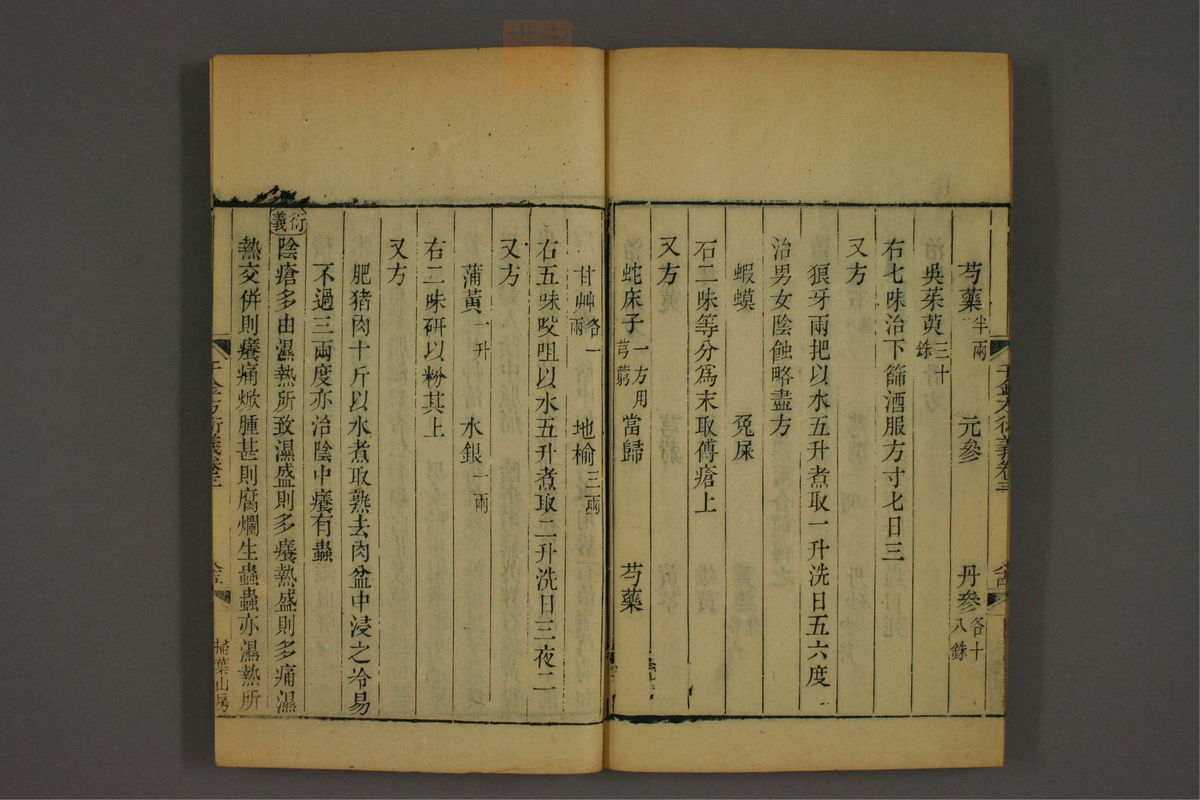 芍藥半兩　元參　丹參各十八銖
吳茱萸三十銖
右七味治下篩酒服方寸匕日三
又方
狼牙兩把以水五升煮取一升洗日五六度
治男女陰蝕略盡方
蝦蟆　兔屎
右二味等分爲末取傅瘡上
又方
蛇床子一方用芎藭　當歸　芍藥
甘艸各一兩　地榆三兩
右五味㕮咀以水五升煮取二升洗日三夜二
又方
蒲黃一升　水銀一兩
右二味硏以粉其上
又方
肥猪肉十斤以水煮取熟去肉盆中浸之冷易
不過三兩度亦治陰中癢有蟲
衍義
陰瘡多由濕熱所致濕盛則多癢熱盛則多痛濕
熱交併則癢痛焮腫甚則腐爛生蟲蟲亦濕熱所
千金方衍義卷三
掃葉山房